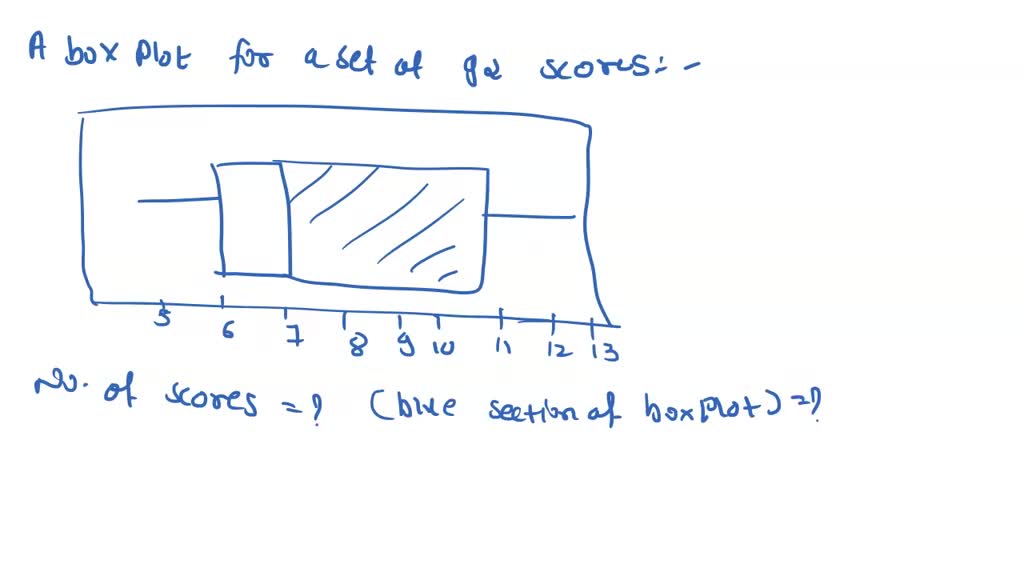 A box plot for a set of 92 scores:-
5 6 7 8 9 10 11 12 13
No. of scores = ? (blue section of box plot) = ?